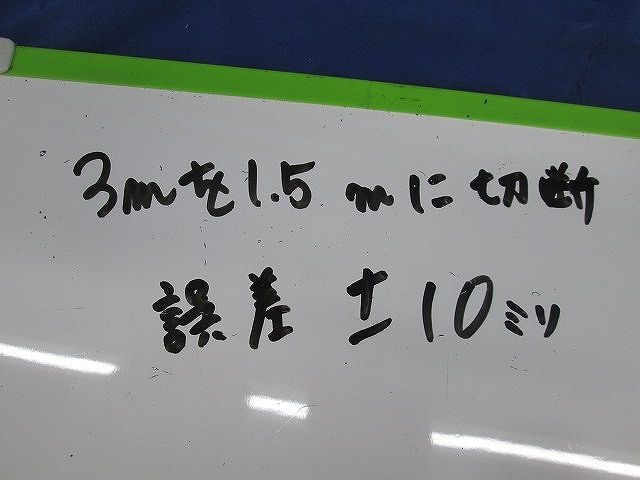 3mを1.5mに切断
誤差 ±10ミリ